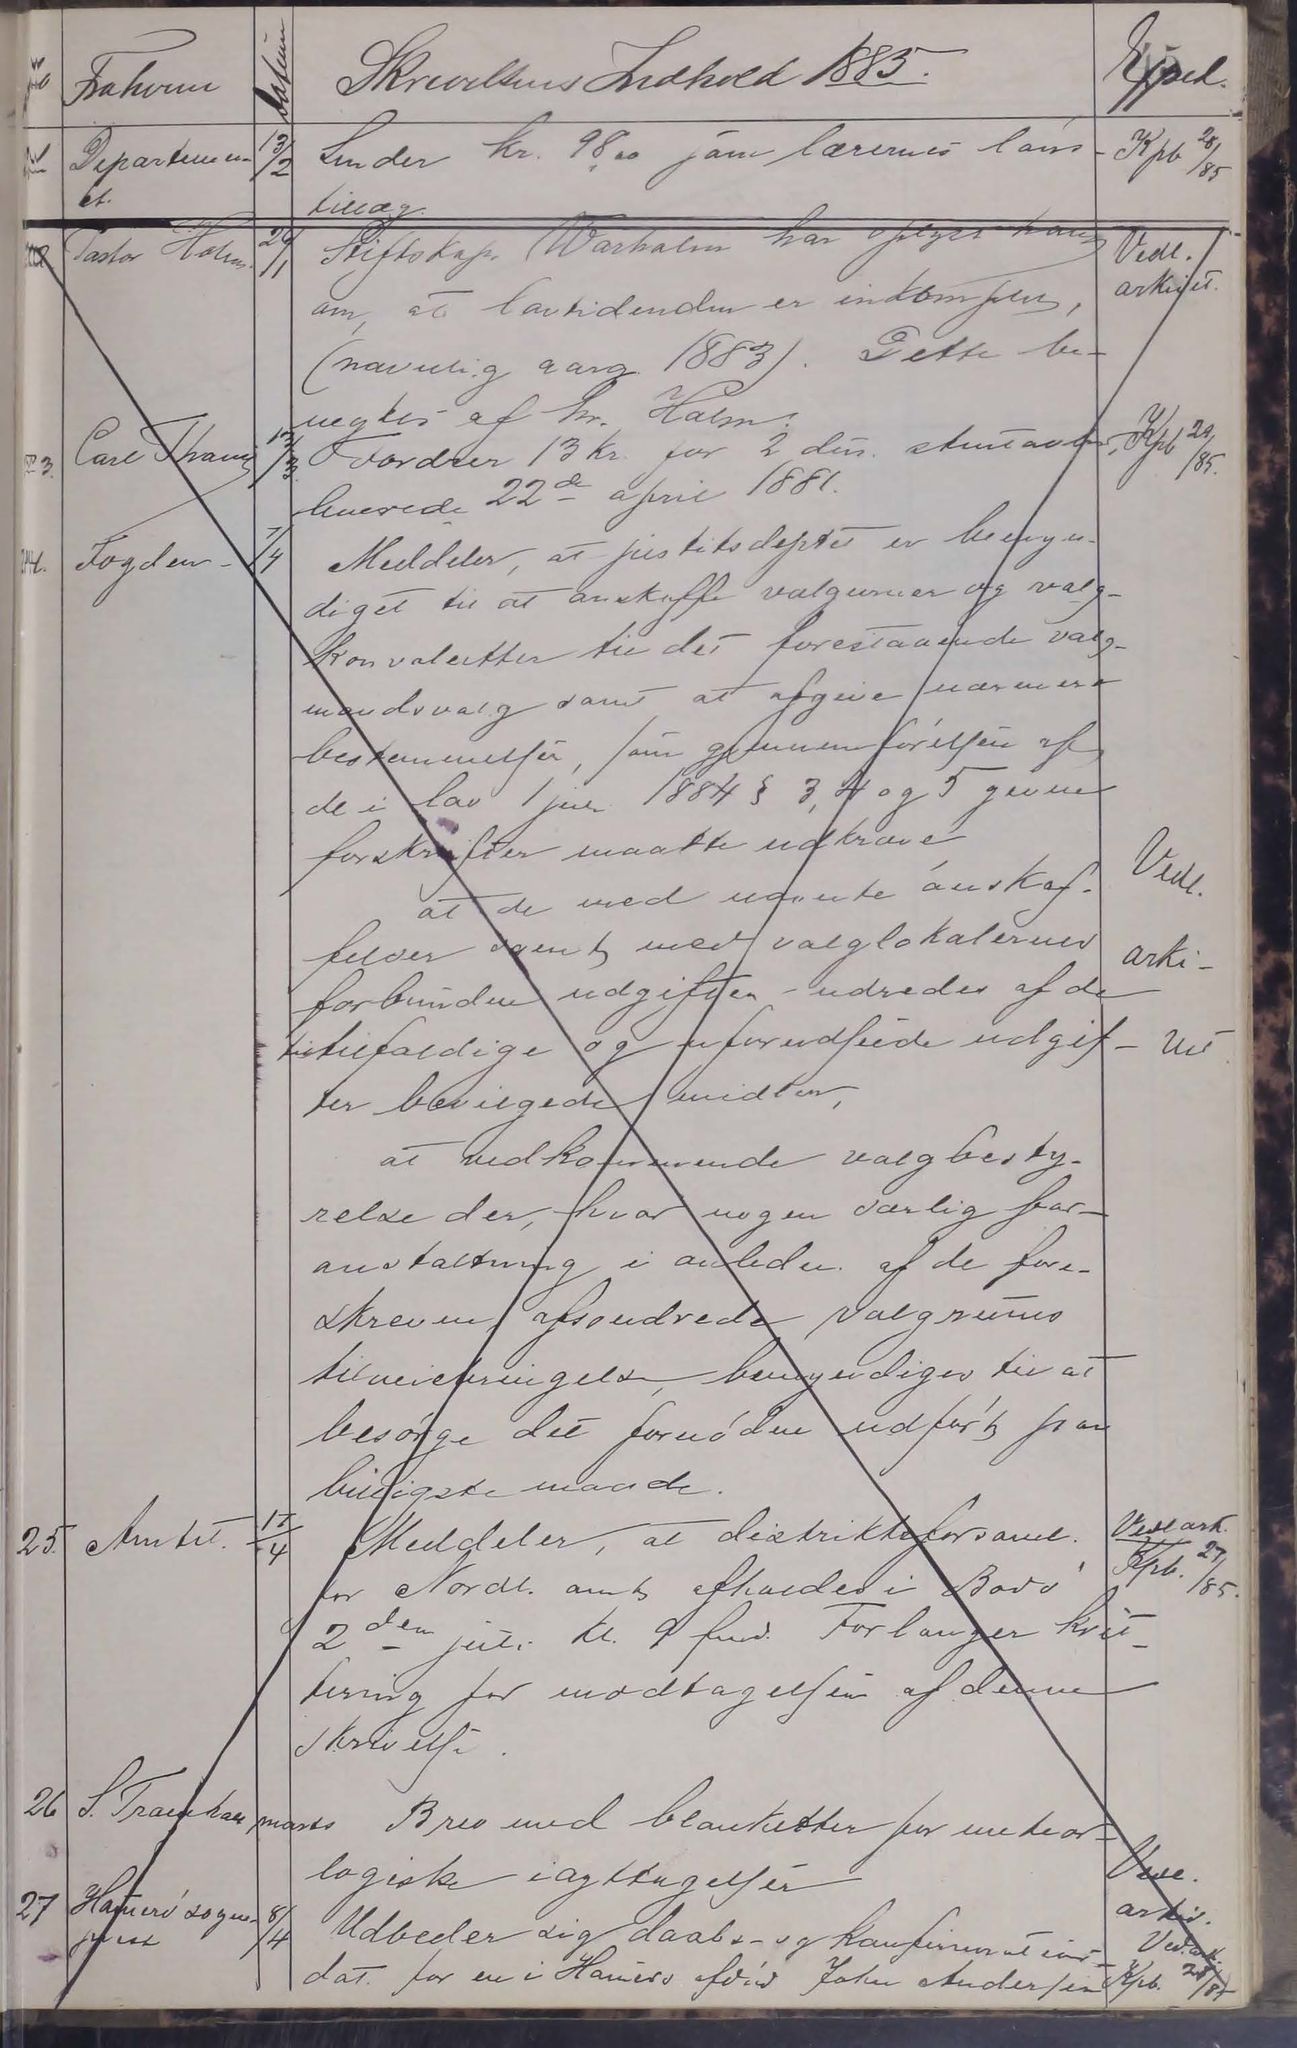 Frahvem Datum Skrivelsens Indhold 1885. Exped.
Departemen- 13/2 Sender kr. 98,00 som lærernes løns- Kpb 28/85
et. tillæg.
Pastor Holm. 29/1 Stiftskap. Warholm har oplyst ham
om, at lovtidenden er inkomplet, Vedl. arkivet.
(navnlig aarg. 1883). Dette be-
negtes af hr. Holm.
3. Carl 13/3 Fordrer 13 kr. for 2 dus. Kpb 29/85.
leverede 22de april 1881.
Fogden 7/4 Meddeler, at justitsdeptet er bemyn-
diget til at anskaffe valgurner og valg-
konvolutter til det forestaaende valg-
mandsvalg samt at afgive nærmere
bestemmelser, som gjennemførelsen af
de i lov 1 juli 1884 § 3, 4 og 5 givne
forskrifter maatte udkræve
at de med nævnte anskaf- Vedl.
felser samt med valglokalernes arki-
forbundne udgifter udredes af de
til tilfældige og uforudseede udgif- vet
ter bevilgede midler,
at vedkommende valgbesty-
relse der, hvor nogen særlig for-
anstaltning i anledn. af de fore-
skrevne afsondrede valgrums
tilveiebringelse, bemyndiges til at
besørge det fornødne udført paa
billigste maade.
25. Amtet. 17/4 Meddeler, at distriktsforsaml. Vedl ark.
for Nordl. amt afholdes i Bodø Kpb. 27/85.
2den juli kl. 9 fmd. Forlanger kvit-
tering for modtagelsen af denne
skrivelse.
26 S. marts Brev med blanketter for meteor-
logiske iagttagelser Vedl. arkiv.
27 Hamerø sogne- 8/4 Udbeder sig daabs- og konfirmations- Ved. ark.
prest dat. for en i Hamerø afdød John Andersen Kpb. 28/85